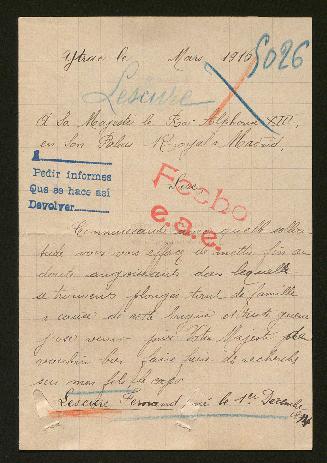 Ytrac le Mars 1916
5026
Lescure
À Sa Majesté le Roi Alphonse XIII
en son Palais Royal à Madrid,
1
Pedir informes
Que se hace así
Devolver
Sire
Fecho
e.a.e.
Connaissant avec quelle sollici-
tude vous vous efforcez de mettre fin au
doute angoissant dans laquelle
se trouvent plongés tant de famille
a cause de cette longue et triste guerre
j'ose venir prier Votre Majesté de
vouloir bien faire faire de recherche
sur mon fils
Lescure Fernand, né le 1er Décembre